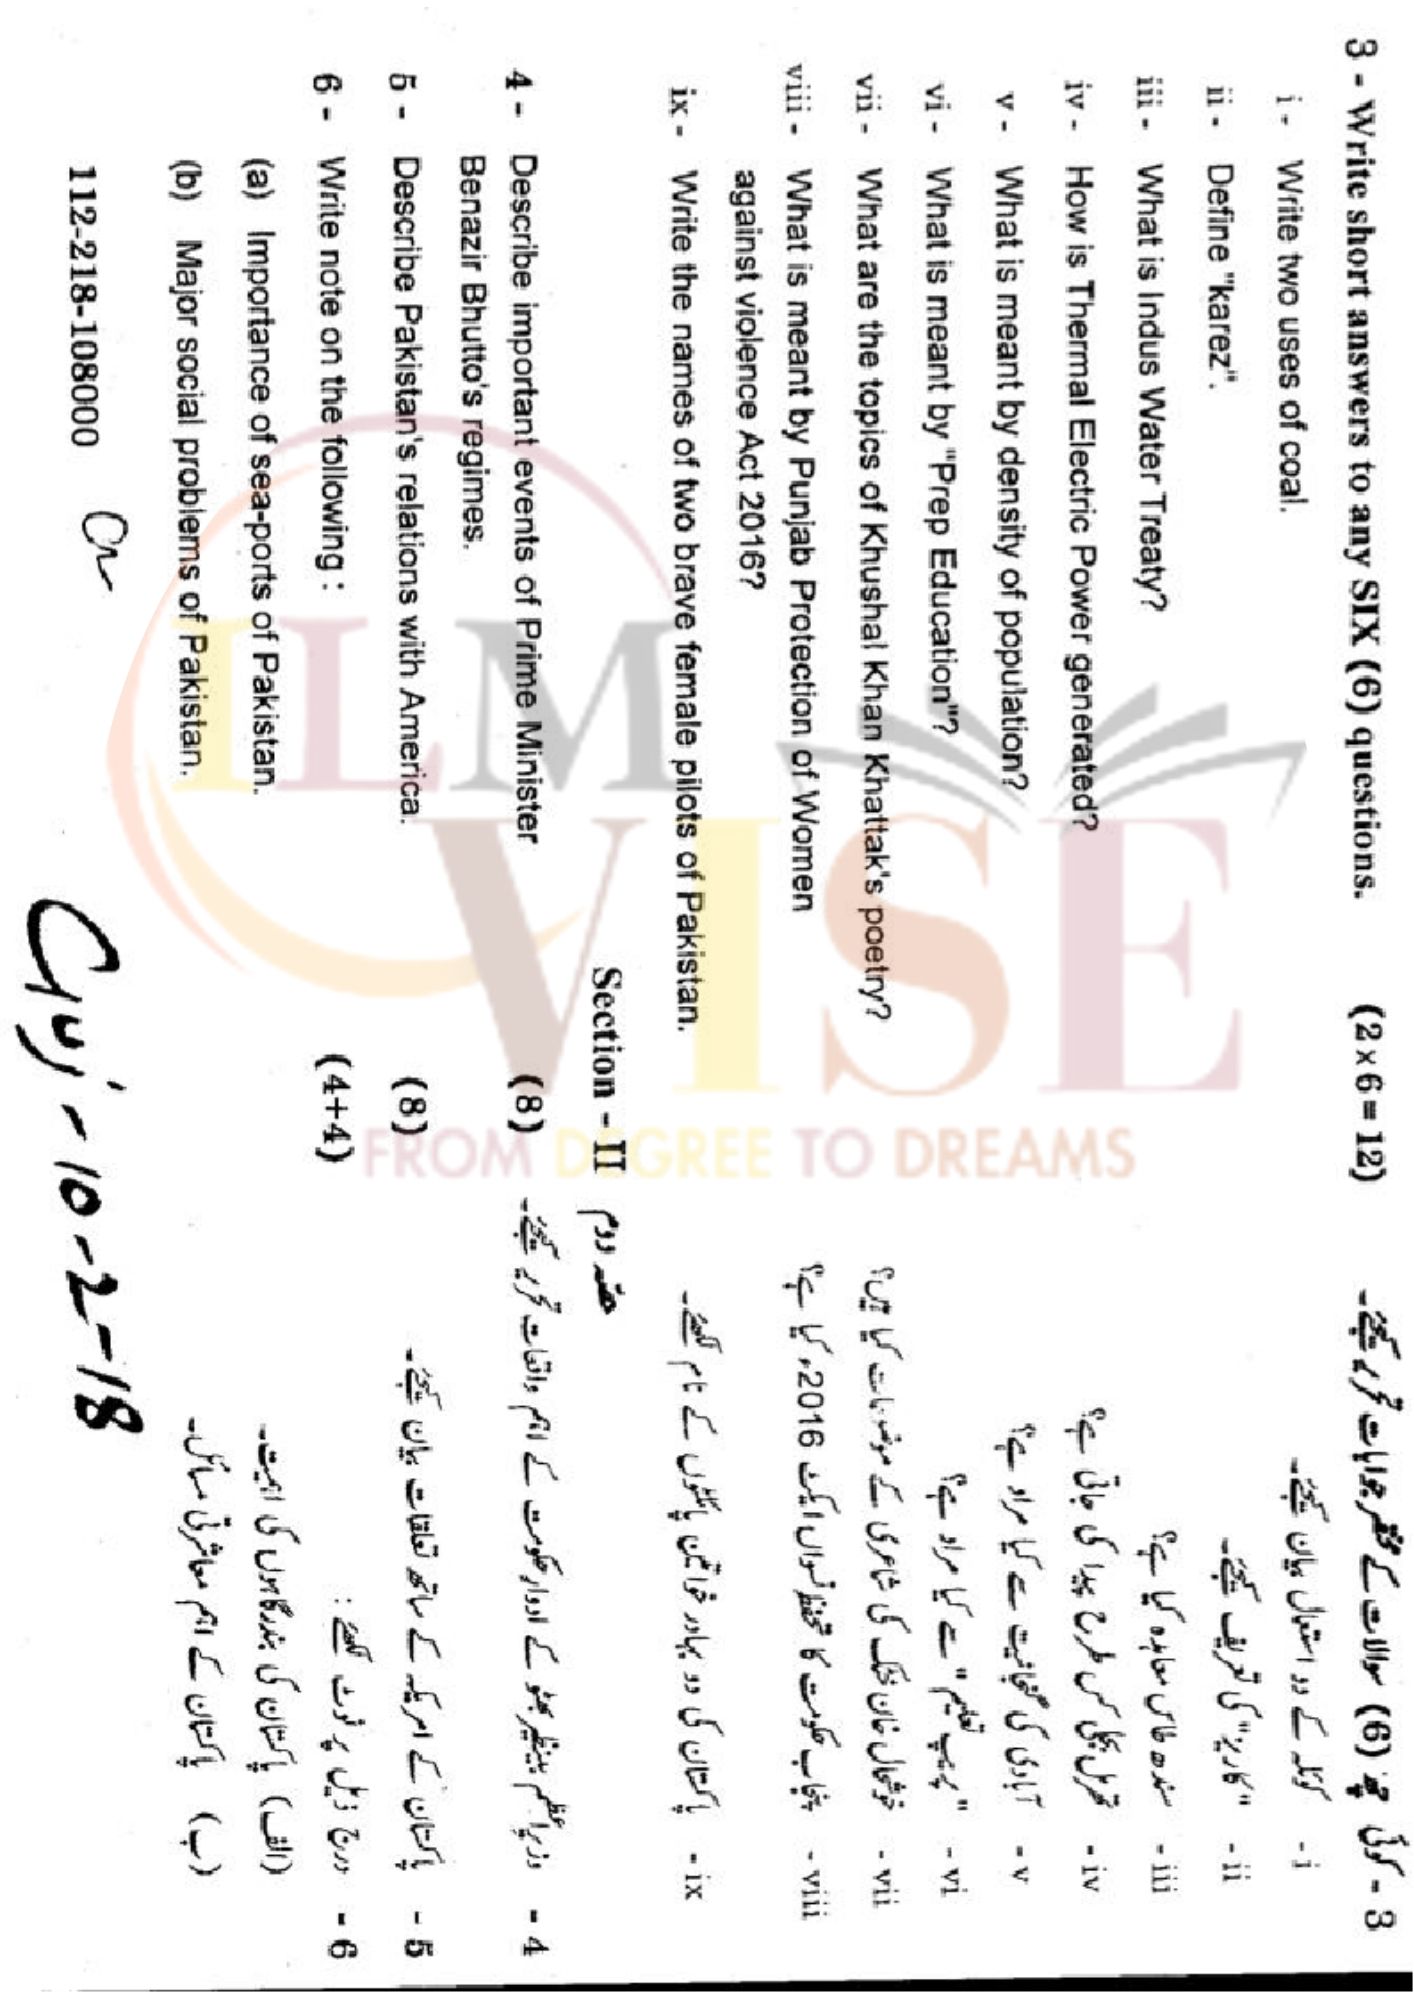 3 - Write short answers to any SIX (6) questions. (2 x 6 = 12) 3 - کوئی چھ (6) سوالات کے مختصر جوابات تحریر کیجئے۔
i - Write two uses of coal. i - کوئلہ کے دو استعمال بیان کیجئے۔
ii - Define "karez". ii - "کاریز" کی تعریف کیجئے۔
iii - What is Indus Water Treaty? iii - سندھ طاس معاہدہ کیا ہے؟
iv - How is Thermal Electric Power generated? iv - تھرمل بجلی کس طرح پیدا کی جاتی ہے؟
v - What is meant by density of population? v - آبادی کی گنجانیت سے کیا مراد ہے؟
vi - What is meant by "Prep Education"? vi - "پریپ تعلیم" سے کیا مراد ہے؟
vii - What are the topics of Khushal Khan Khattak's poetry? vii - خوشحال خان خٹک کی شاعری کے موضوعات کیا ہیں؟
viii - What is meant by Punjab Protection of Women viii - پنجاب حکومت کا تحفظ نسواں ایکٹ 2016ء کیا ہے؟
against violence Act 2016?
ix - Write the names of two brave female pilots of Pakistan. ix - پاکستان کی دو بہادر خواتین پائلٹوں کے نام لکھئے۔
Section - II حصہ دوم
4 - Describe important events of Prime Minister (8) 4 - وزیراعظم بینظیر بھٹو کے ادوار حکومت کے اہم واقعات تحریر کیجئے۔
Benazir Bhutto's regimes.
5 - Describe Pakistan's relations with America. (8) 5 - پاکستان کے امریکہ کے ساتھ تعلقات بیان کیجئے۔
6 - Write note on the following : (4+4) 6 - درج ذیل پر نوٹ لکھئے :
(a) Importance of sea-ports of Pakistan. (الف) پاکستان کی بندرگاہوں کی اہمیت۔
(b) Major social problems of Pakistan. (ب) پاکستان کے اہم معاشرتی مسائل۔
112-218-108000
Guj - 10-2-18
ILM
VISE
FROM DEGREE TO DREAMS